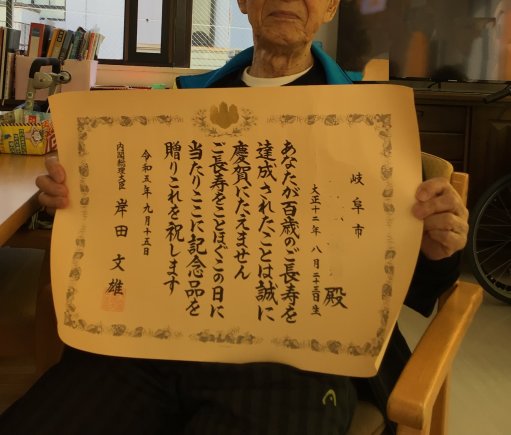 岐阜市
殿
大正十二年八月二十三日生
あなたが百歳のご長寿を
達成されたことは誠に
慶賀にたえません
ご長寿をことほぐこの日に
当たりここに記念品を
贈りこれを祝します
令和五年九月十五日
内閣総理大臣 岸田文雄